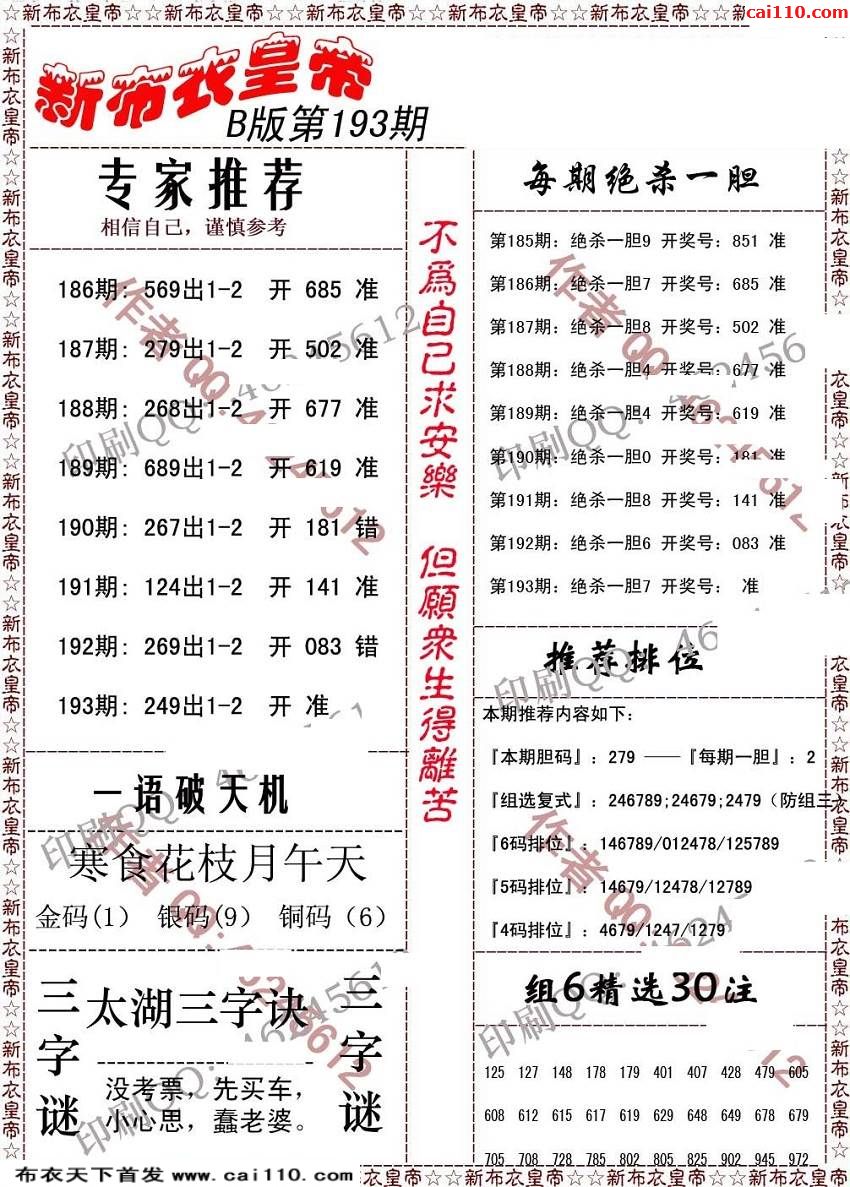 ☆☆新布衣皇帝☆☆新布衣皇帝☆☆新布衣皇帝☆☆新布衣皇帝☆☆新布衣皇帝☆☆新
cai110.com
新布衣皇帝
B版第193期
专家推荐
相信自己，谨慎参考
186期: 569出1-2 开 685 准
187期: 279出1-2 开 502 准
188期: 268出1-2 开 677 准
189期: 689出1-2 开 619 准
190期: 267出1-2 开 181 错
191期: 124出1-2 开 141 准
192期: 269出1-2 开 083 错
193期: 249出1-2 开 准
一语破天机
寒食花枝月午天
金码(1) 银码(9) 铜码（6）
三字谜
太湖三字诀
没考票，先买车，
小心思，蠢老婆。
三字谜
不爲自己求安樂 但願衆生得離苦
每期绝杀一胆
第185期: 绝杀一胆9 开奖号: 851 准
第186期: 绝杀一胆7 开奖号: 685 准
第187期: 绝杀一胆8 开奖号: 502 准
第188期: 绝杀一胆4 开奖号: 677 准
第189期: 绝杀一胆4 开奖号: 619 准
第190期: 绝杀一胆0 开奖号: 181 准
第191期: 绝杀一胆8 开奖号: 141 准
第192期: 绝杀一胆6 开奖号: 083 准
第193期: 绝杀一胆7 开奖号: 准
推荐排位
本期推荐内容如下:
『本期胆码』: 279 ——『每期一胆』: 2
『组选复式』: 246789;24679;2479（防组三）
『6码排位』: 146789/012478/125789
『5码排位』: 14679/12478/12789
『4码排位』: 4679/1247/1279
组6精选30注
125 127 148 178 179 401 407 428 479 605
608 612 615 617 619 629 648 649 678 679
705 708 728 785 802 805 825 902 945 972
布衣天下首发 www.cai110.com
衣皇帝☆☆新布衣皇帝☆☆新布衣皇帝☆☆新布衣皇帝☆☆